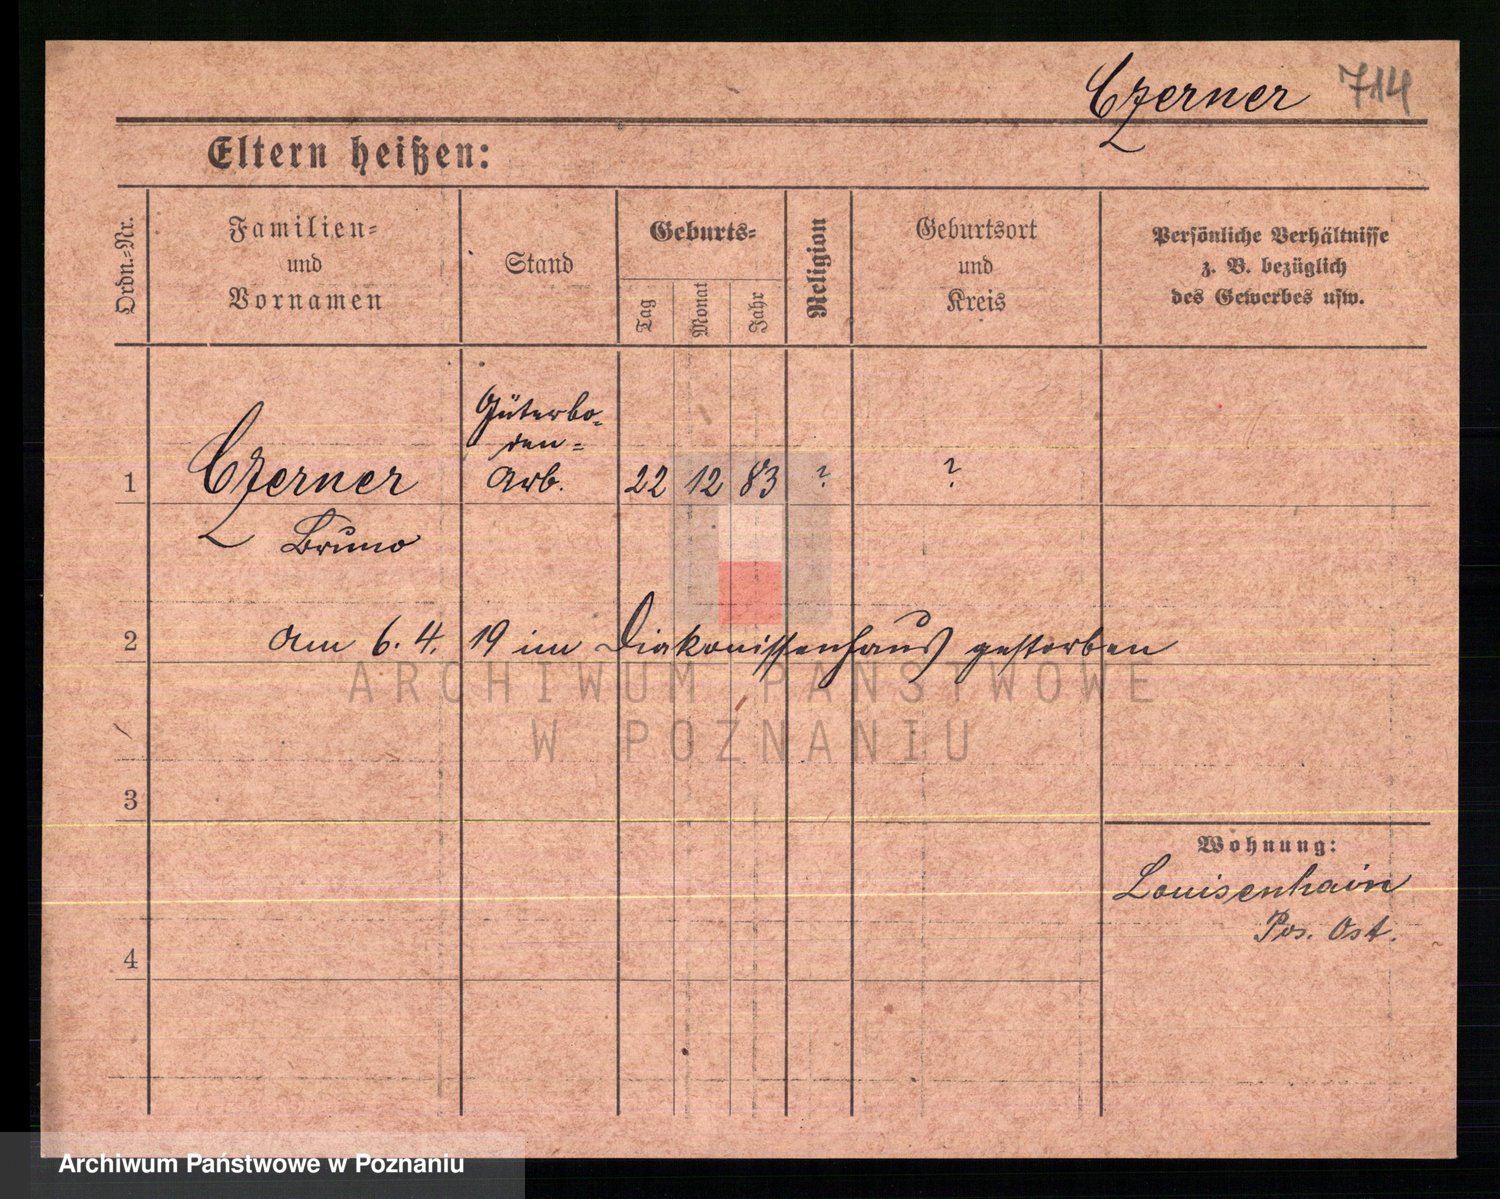 Czerner 714
Eltern heißen:
Ordn.-Nr.
Familien-
und
Vornamen
Stand
Geburts-
Tag
Monat
Jahr
Religion
Geburtsort
und
Kreis
Persönliche Verhältnisse
z. B. bezüglich
des Gewerbes usw.
Güterbo-
den-
1 Czerner Arb. 22 12 83 ? ?
Bruno
2 am 6. 4. 19 im Diakonissenhaus gestorben
ARCHIWUM PAŃSTWOWE
W POZNANIU
3
Wohnung:
Louisenhain
Pos. Ost.
4
Archiwum Państwowe w Poznaniu